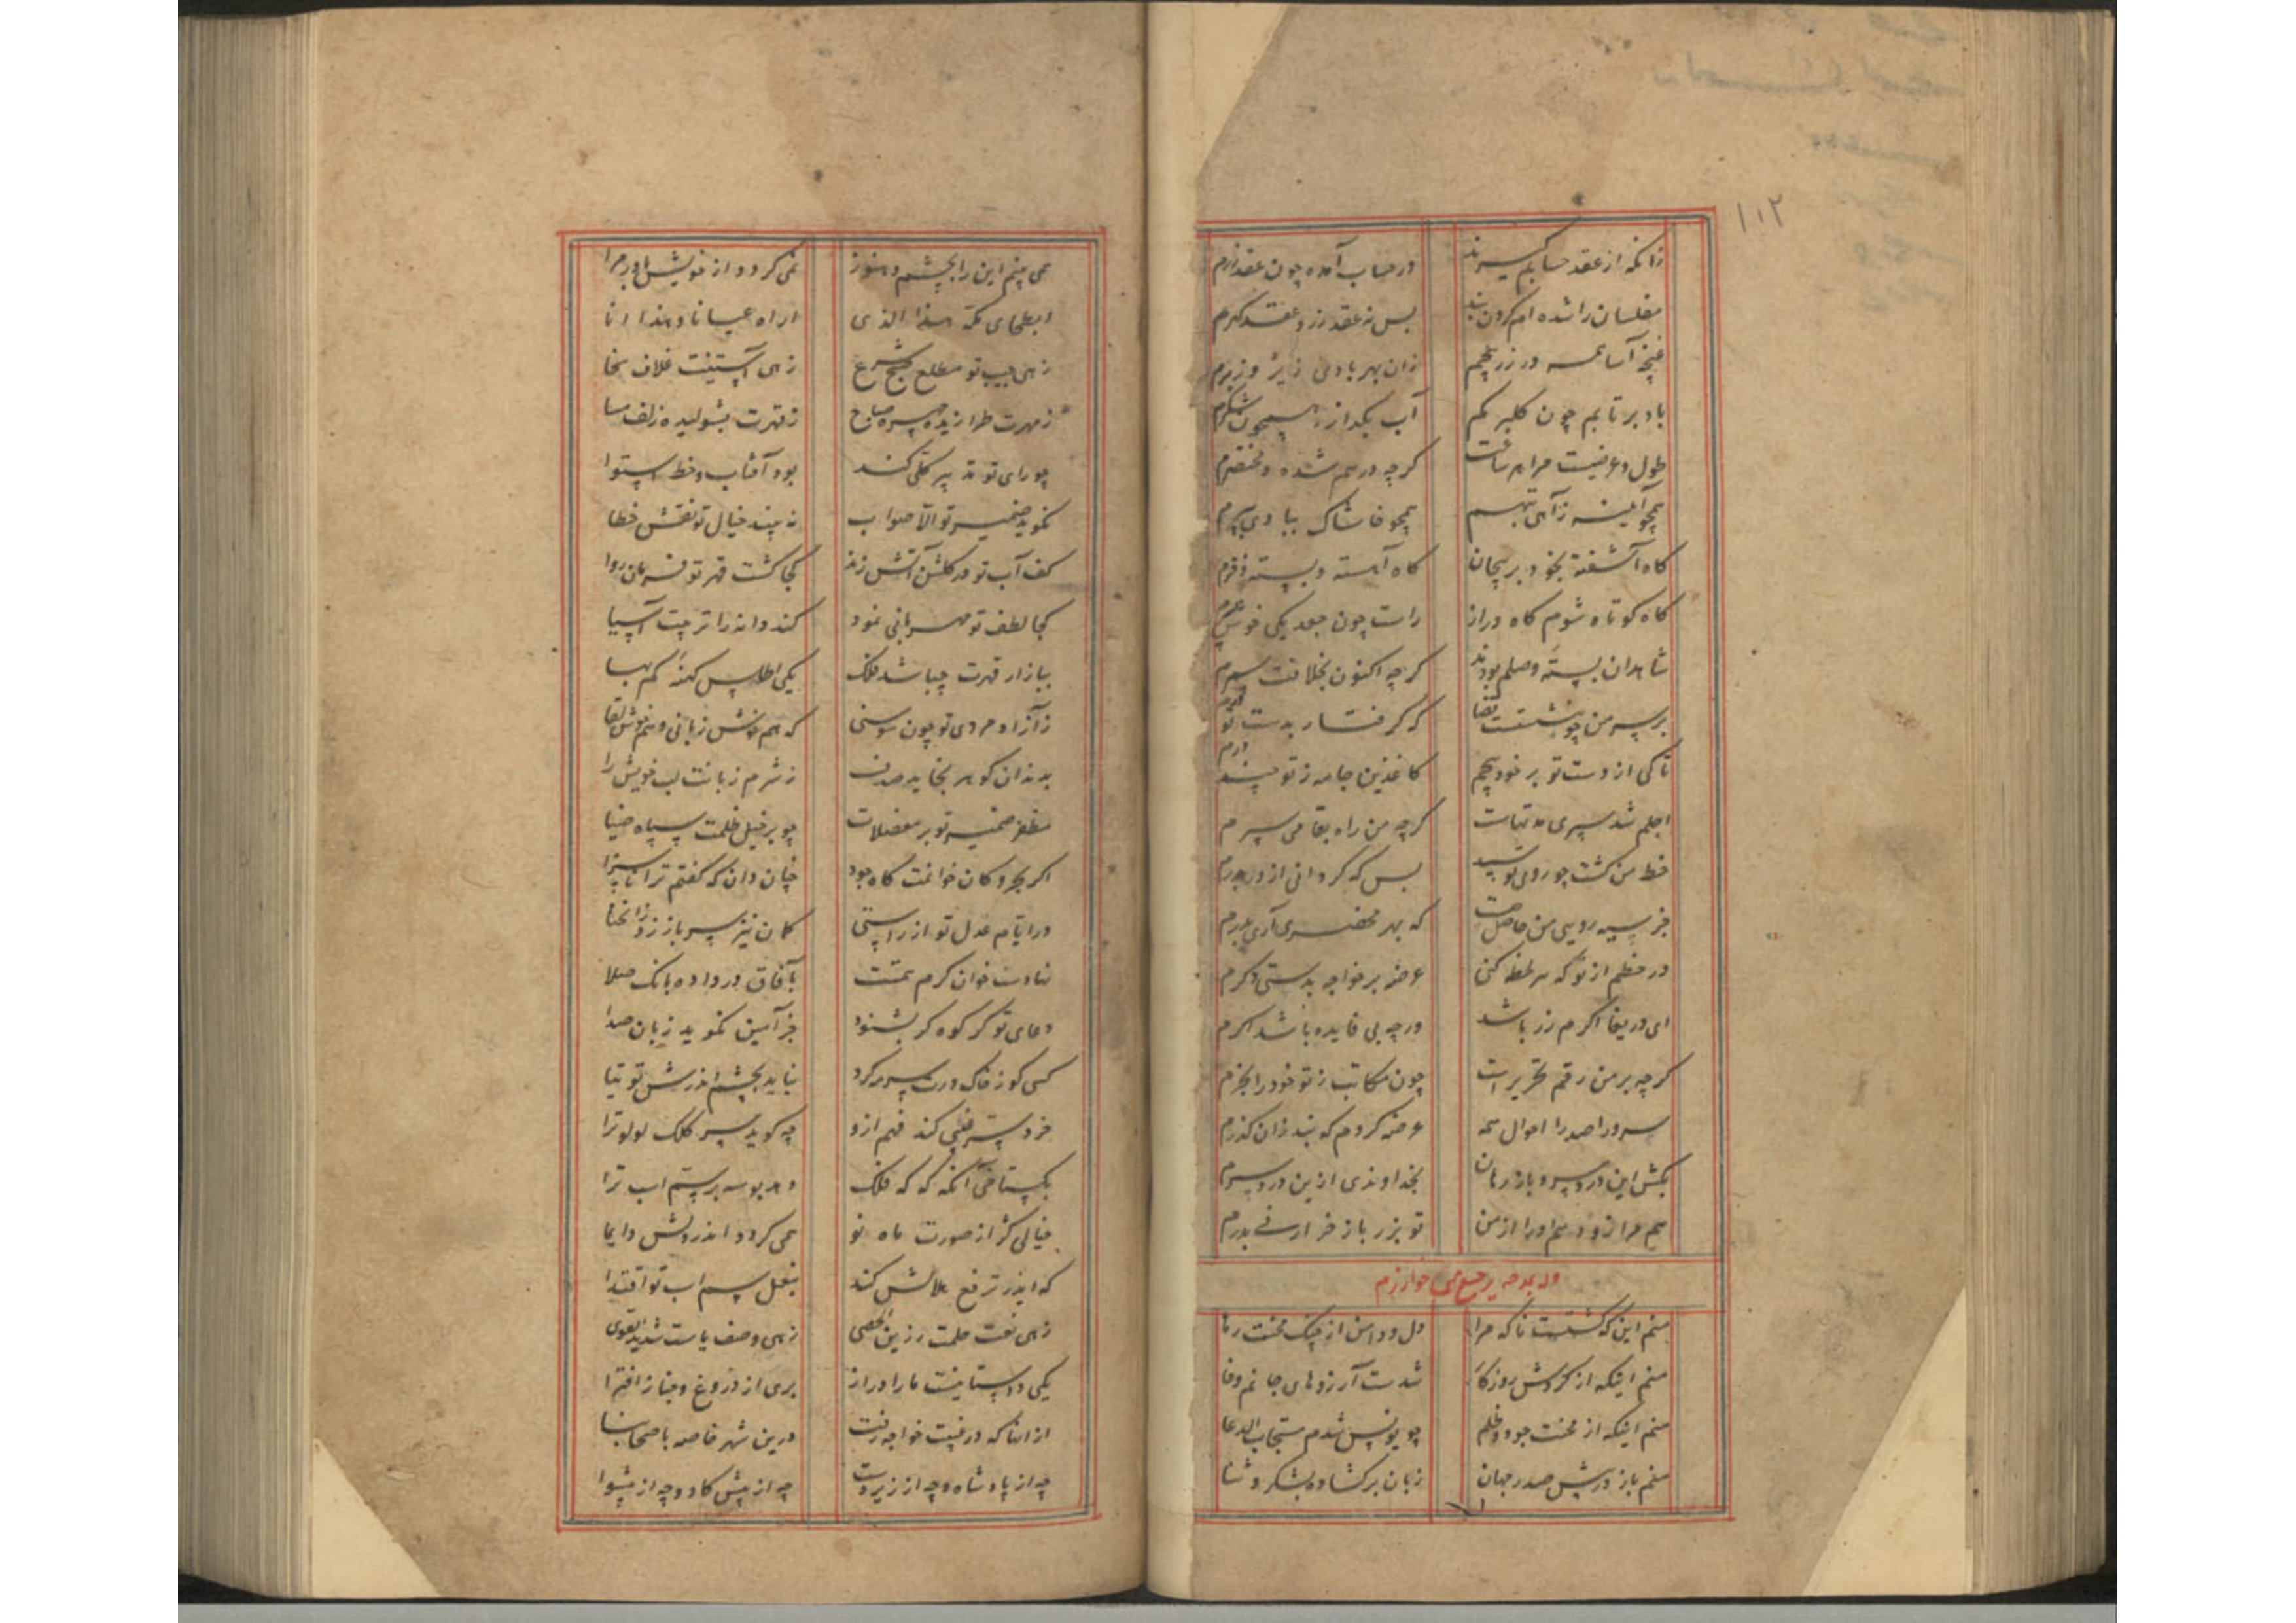 ۱۰۲
زانکه از عقد حسابم گیرند در حساب آمده چون عقد زرم
مفلسان را شده ام کردن بند بس نه عقد زر و عقد گهرم
غنچه آسا همه در زر پیچم زان بهر بادی زیر و زبرم
باد برتابم چون کلبر کم آب بگدازد همچون شکرم
طول و عرضیست مرا هر ساعت کرچه درهم شده و مختصرم
همچو آیینه ز آهی همچو خاشاک ببادی بپرم
کاه آشفته بخود بر پیچان کاه آهسته و بسته
کاه کوتاه شوم کاه دراز راست چون جعد یکی خوش
شاهدان بسته وصلم بودند کرچه اکنون بخلافت سمرم
بر سر من چو نبشتست قضا که گرفتار بدست تو درم
تا کی از دست تو بر خود پیچم کاغذین جامه ز تو چند درم
اجلم شد سپری مدتهاست کرچه من راه بقا می سپرم
خط من کشت چو روی تو سپید بس که گردانی از در بدرم
جز سیه رویی من حاصل چیست که بهر محضری آری
در خطم از تو که هر لحظه کنی عرضه بر خواجه بدستی دگرم
ای دریغا اگرم زر باشد ورچه بی فایده باشد اگرم
کرچه بر من رقم تحریر است چون مکاتب ز تو خود را بخرم
سرورا صدرا احوال همه عرضه کردم که نبد زان گذرم
بکش این درد سر و باز رهان بخداوندی ازین درد سرم
هم مرا زو و هم او را از من تو بزر باز خر ار نی بدرم
وله یمدحه خوارزم
منم این که گشتست ناکه مرا دل و دامن از چنگ محنت رها
منم اینکه از کردش روزکار شدست آرزوهای جانم وفا
منم اینکه از محنت جود و ظلم چو یونس شدم مستجاب الدعا
منم باز در پیش صدر جهان زبان بر گشاده بشکر و ثنا
همی بینم این را بچشم و هنوز نمی گردد از خویش باور مرا
ابطحای مکه هذا الذی اراه عیانا و هذا انا
زهی جیب تو مطلع صبح شرع زهی آستینت غلاف سخا
ز مهرت طرازیده چهره صباح ز قهرت بشولیده زلف مسا
چو رای تو تدبیر کلی کند بود آفتاب و خط استوا
نگوید ضمیر تو الا صواب نه بیند خیال تو نقش خطا
کف آب تو در گلشن آتش زند کجا گشت قهر تو فرمان روا
کجا لطف تو مهربانی نمود کند دانه را تربیت آسیا
ببازار قدرت چه باشد فلک یکی اطلس کهنه کم بها
ز آزاد مردی تو چون سوسنی که هم خوش زبانی و هم خوش لقا
بدندان گوهر بخاید صدف ز شرم زبانت لب خویش را
مظفر ضمیر تو بر معضلات چو بر خیل ظلمت سپاه ضیا
اگر بحر و کان خوانمت کاه جود چنان دان که گفتم ترا ناسزا
در ایام عدل تو از راستی کمان نیز سر باز زد ز انحنا
نهادست خوان کرم همتت بآفاق در داده بانک صلا
دعای تو گر کوه کر بشنود جز آمین نگوید زبان صدا
کسی کو ز خاک درت سرمه کرد نیاید بچشم اندرش توتیا
خرد پیش کند فهم ازو چه گوید سر کلک لولو ترا
بگستاخی آنکه که که فلک دهد بوسه بر سم اسب ترا
خیالی کژ از صورت ماه نو همی گردد اندر دلش دایما
که اندر ترفع هلالش کند بنعل سم اسب تو اقتدا
زهی نعت حلمت رزین الحصی زهی وصف باست شدید القوی
یکی داستانیست ما را دراز بری از دروغ و جدا ز افترا
از انها که در غیبت خواجه رفت درین شهر خاصه باصحابنا
چه از پادشاه و چه از زیردست چه از پیش کار و چه از پیشوا